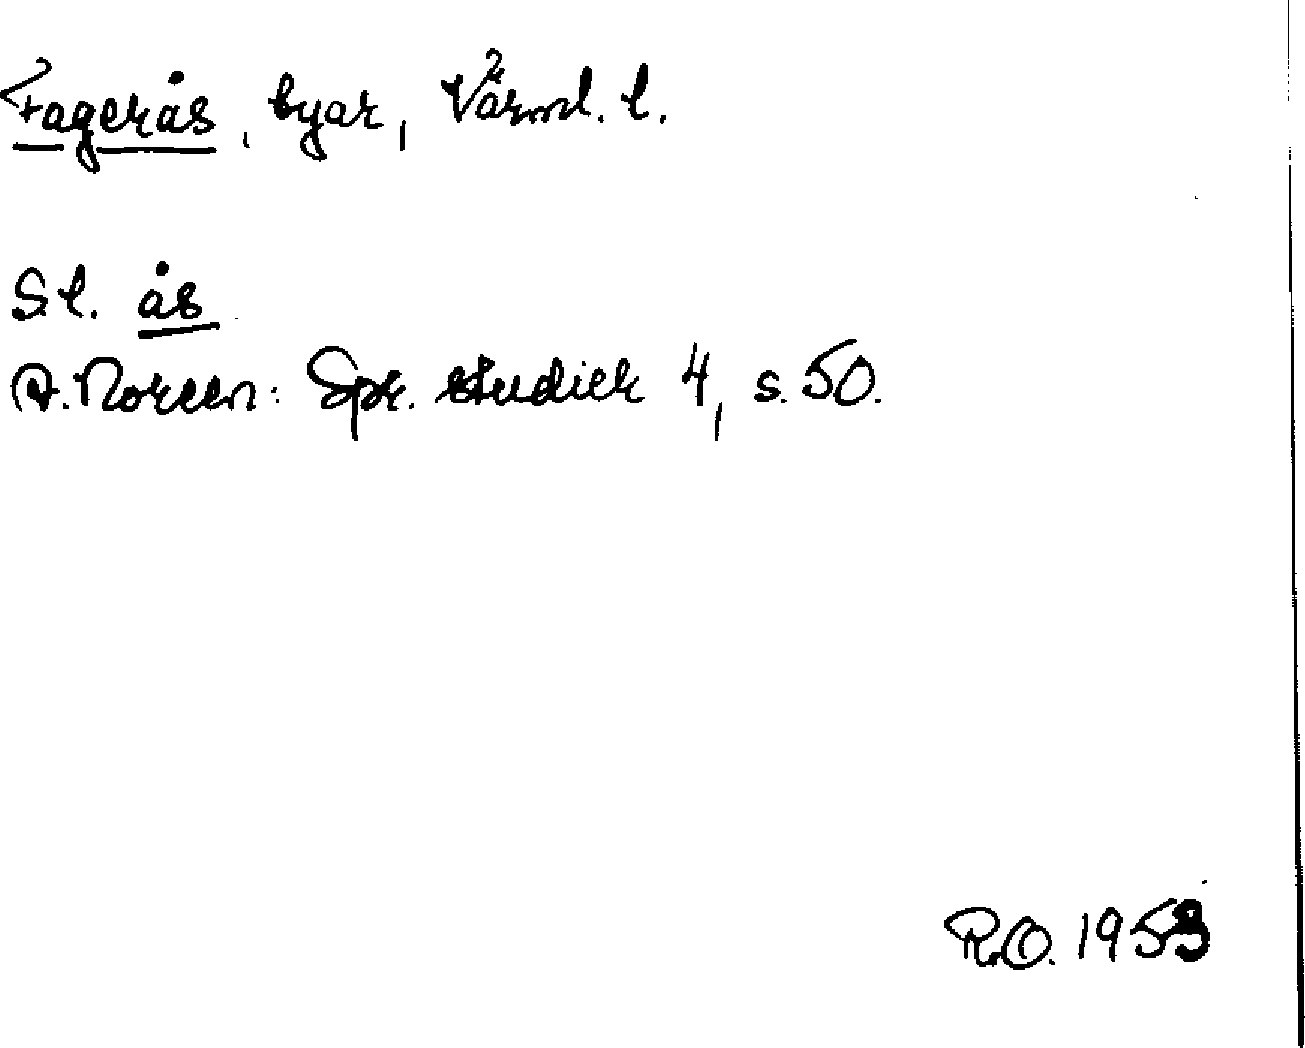 Fagerås, byar, Värml. l.
S.l. ås
A. Noreen: Spr. studier 4, s. 50.
R.O. 1953